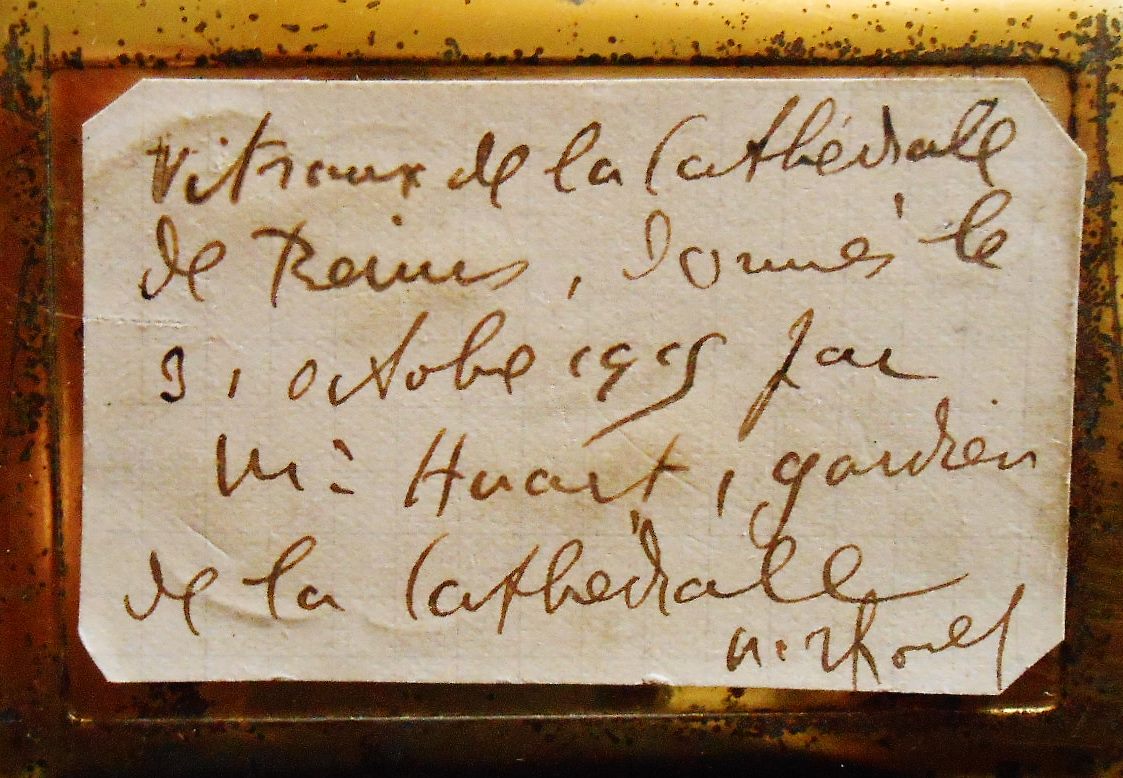 Vitraux de la Cathédrale
de Reims, donnés le
3, octobre 1915 par
Mr Huart, gardien
de la Cathédralle